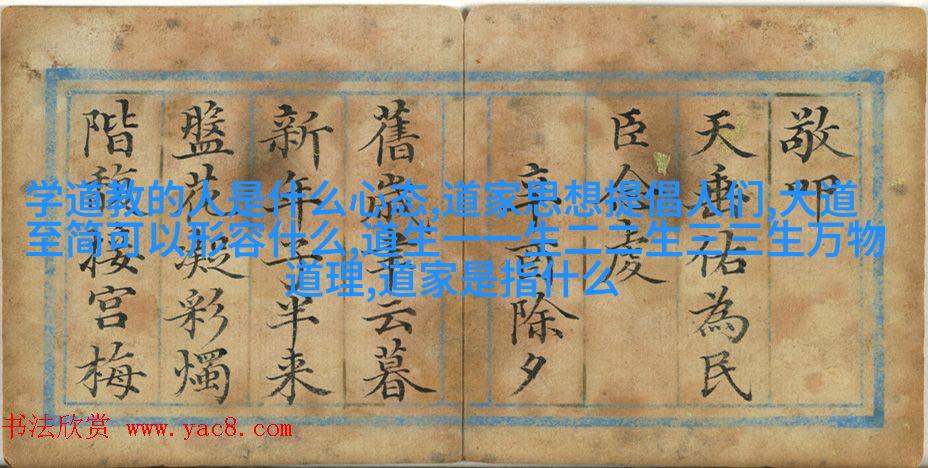 学道教的人是什么心态,道家思想提倡人们,大道
至简可以形容什么,道生一一生二二生三三生万物
道理,道家是指什么
敬
天垂祐為民
臣虔
辛酉除夕
舊歲聿云暮
新年子半来
盤花凝彩燭
階馥接宮梅
书法欣赏 www.yac8.com